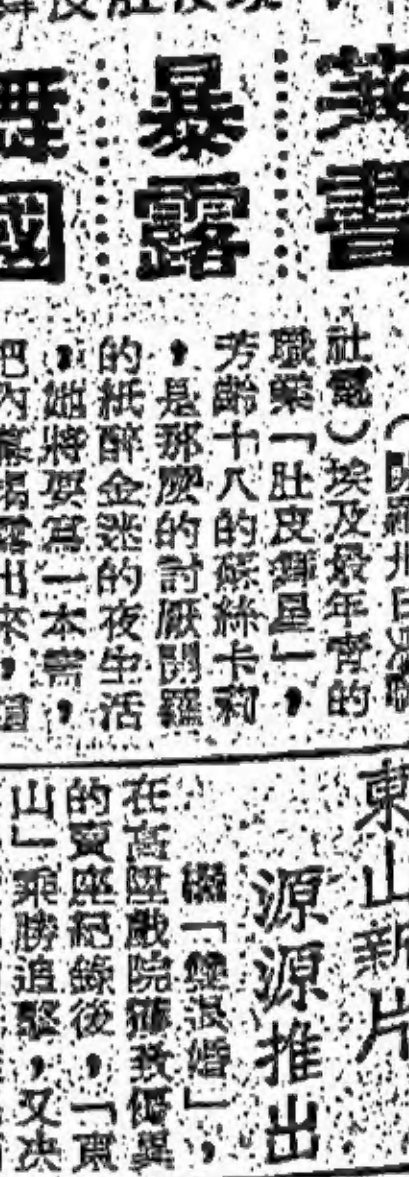 著書
暴露
舞國
社電）埃及最年青的
職業「肚皮舞星」，
芳齡十八的碌絲卡莉
，是那麼的討厭開羅
的紙醉金迷的夜生活
，她將要寫一本書，
把內幕揭露出來，
東山新片
源源推出
繼「雙退婚」，
在高陞戲院獲致優異
的賣座紀錄後，「東
山」乘勝追擊，又決